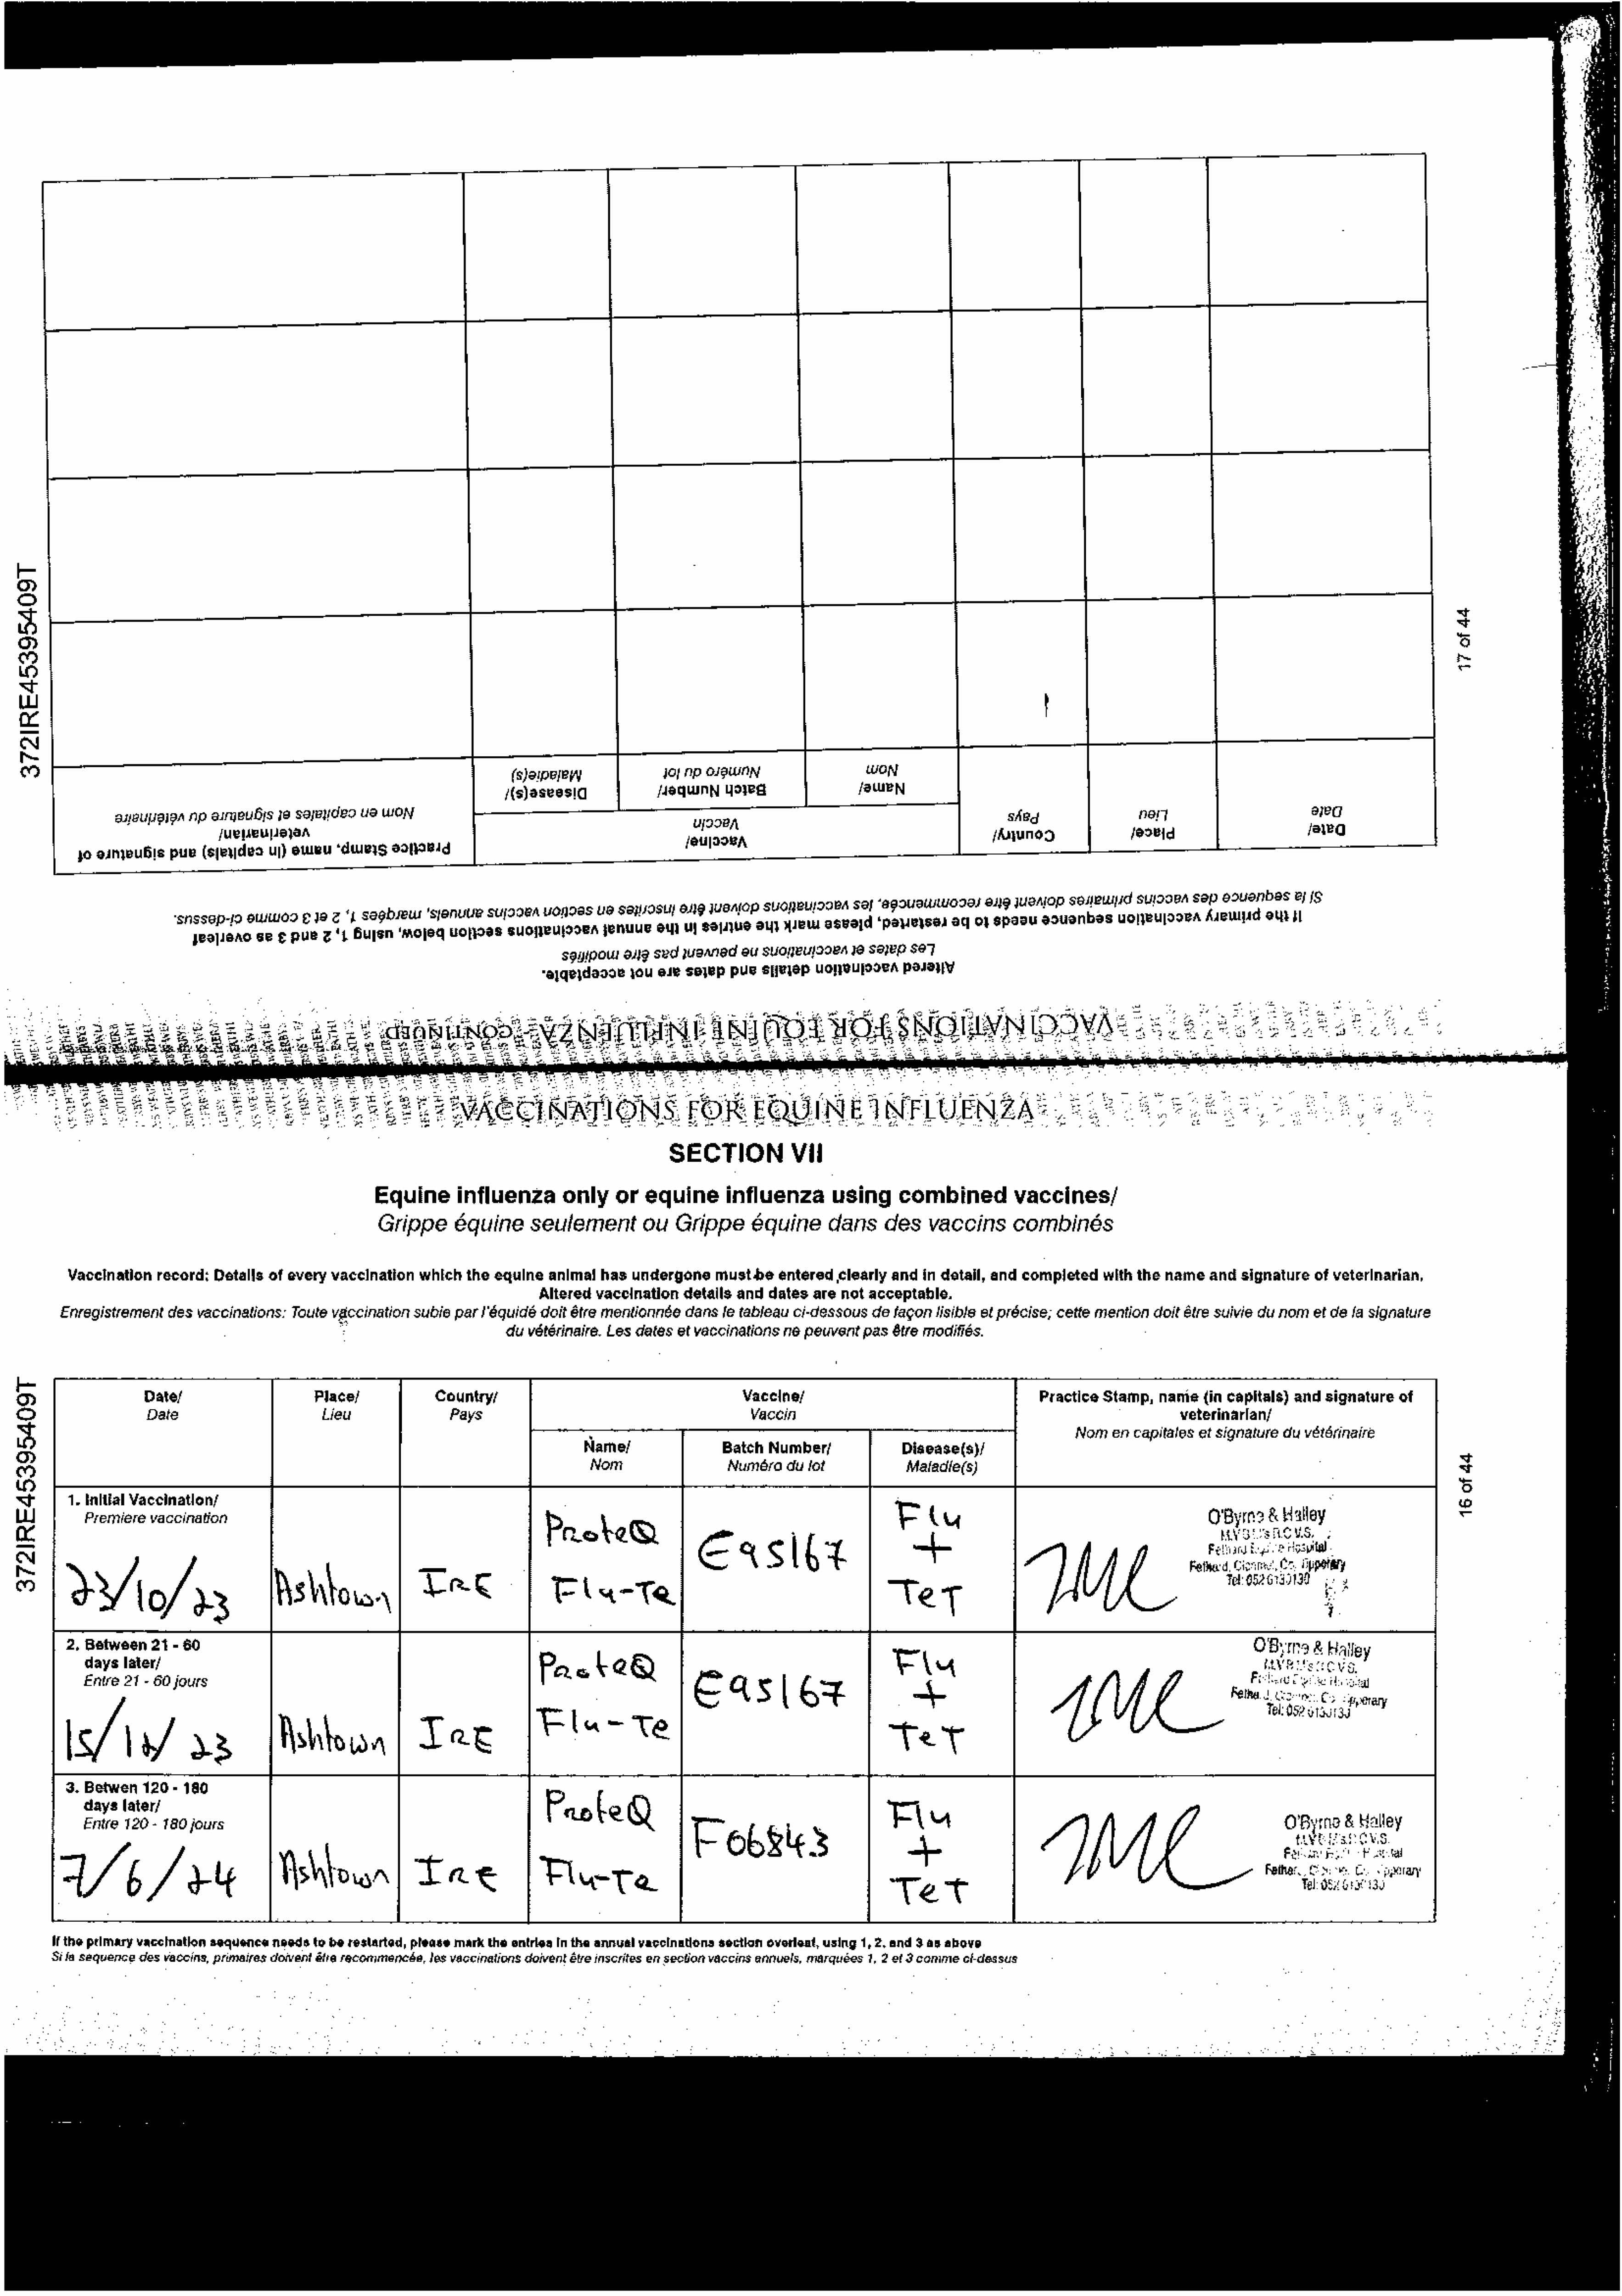 372IRE45395409T
17 of 44
Practice Stamp, name (in capitals) and signature of
veterinarian/
Nom en capitales et signature du vétérinaire
Vaccine/
Vaccin
Disease(s)/
Maladie(s)
Batch Number/
Numéro du lot
Name/
Nom
Country/
Pays
Place/
Lieu
Date/
Date
VACCINATIONS FOR EQUINE INFLUENZA - CONTINUED
Altered vaccination details and dates are not acceptable.
Les dates et vaccinations ne peuvent pas être modifiés
If the primary vaccination sequence needs to be restarted, please mark the entries in the annual vaccinations section below, using 1, 2 and 3 as overleaf
Si la sequence des vaccins primaires doivent être recommencée, les vaccinations doivent être inscrites en section vaccins annuels, marquées 1, 2 et 3 comme ci-dessus.
VACCINATIONS FOR EQUINE INFLUENZA
SECTION VII
Equine influenza only or equine influenza using combined vaccines/
Grippe équine seulement ou Grippe équine dans des vaccins combinés
Vaccination record: Details of every vaccination which the equine animal has undergone must be entered clearly and in detail, and completed with the name and signature of veterinarian.
Altered vaccination details and dates are not acceptable.
Enregistrement des vaccinations: Toute vaccination subie par l'équidé doit être mentionnée dans le tableau ci-dessous de façon lisible et précise; cette mention doit être suivie du nom et de la signature
du vétérinaire. Les dates et vaccinations ne peuvent pas être modifiés.
372IRE45395409T
16 of 44
Date/
Date
Place/
Lieu
Country/
Pays
Vaccine/
Vaccin
Name/
Nom
Batch Number/
Numéro du lot
Disease(s)/
Maladie(s)
Practice Stamp, name (in capitals) and signature of
veterinarian/
Nom en capitales et signature du vétérinaire
1. Initial Vaccination/
Premiere vaccination
23/10/23
Ashtown
IRE
ProteQ
Flu-Te
E95167
Flu
+
TeT
O'Byrne & Halley
Fethard Equine Hospital
Fethard, Clonmel, Co. Tipperary
Tel: 052 6130130
2. Between 21 - 60
days later/
Entre 21 - 60 jours
15/12/23
Ashtown
IRE
ProteQ
Flu-Te
E95167
Flu
+
TeT
O'Byrne & Halley
3. Betwen 120 - 180
days later/
Entre 120 - 180 jours
7/6/24
Ashtown
IRE
ProteQ
Flu-Te
F06843
Flu
+
TeT
O'Byrne & Halley
If the primary vaccination sequence needs to be restarted, please mark the entries in the annual vaccinations section overleaf, using 1, 2, and 3 as above
Si la sequence des vaccins, primaires doivent être recommencée, les vaccinations doivent être inscrites en section vaccins annuels, marquées 1, 2 et 3 comme ci-dessus